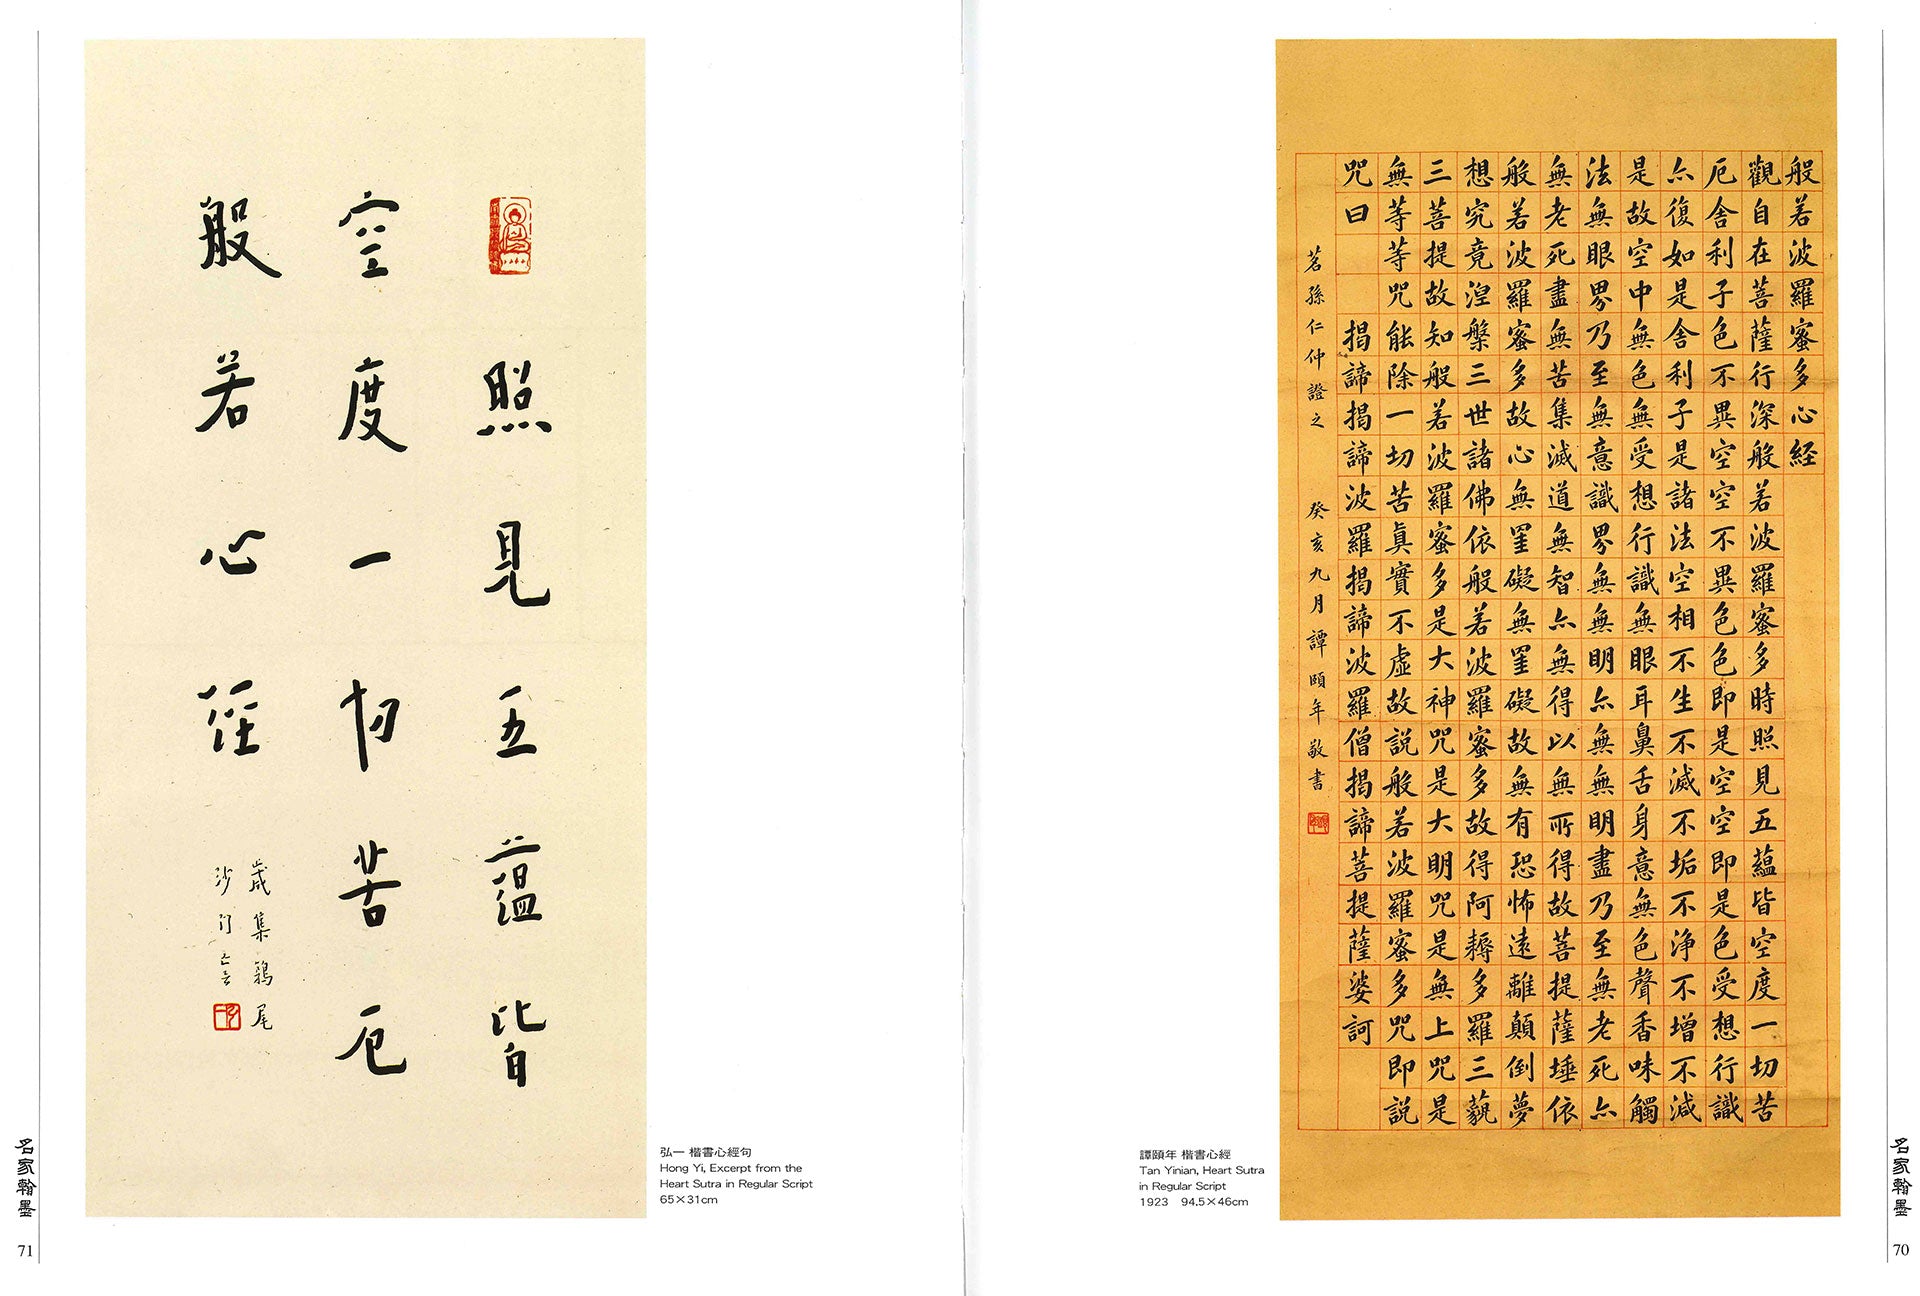 般若波羅蜜多心経
觀自在菩薩行深般若波羅蜜多時照見五蘊皆空度一切苦
厄舍利子色不異空空不異色色即是空空即是色受想行識
亦復如是舍利子是諸法空相不生不滅不垢不淨不增不減
是故空中無色無受想行識無眼耳鼻舌身意無色聲香味觸
法無眼界乃至無意識界無無明亦無無明盡乃至無老死亦
無老死盡無苦集滅道無智亦無得以無所得故菩提薩埵依
般若波羅蜜多故心無罣礙無罣礙故無有恐怖遠離顛倒夢
想究竟涅槃三世諸佛依般若波羅蜜多故得阿耨多羅三藐
三菩提故知般若波羅蜜多是大神咒是大明咒是無上咒是
無等等咒能除一切苦真實不虛故說般若波羅蜜多咒即說
咒曰 揭諦揭諦波羅揭諦波羅僧揭諦菩提薩婆訶
茗孫仁仲證之 癸亥九月譚頤年敬書
譚頤年 楷書心經
Tan Yinian, Heart Sutra
in Regular Script
1923 94.5×46cm
名家翰墨
70
照見五蘊皆
空度一切苦厄
般若心經
歲集鶉尾
沙門亡言
弘一 楷書心經句
Hong Yi, Excerpt from the
Heart Sutra in Regular Script
65×31cm
名家翰墨
71